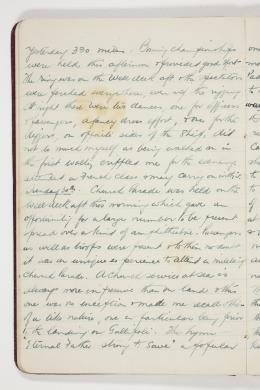 Yesterday 330 miles. Boxing championships
were held this afternoon & provided good sport.
The ring was on the Well deck aft & the spectators
were perched everywhere, even up the rigging
At night there were two dances, one for Officers
& passengers, a fancy dress effort, & one for the
diggers, on opposite sides of the ship, did
not do much myself as being walked on in
the first waltz, crippled me for the evening
Sunday 20th. Church Parade was held on the
Well deck aft this morning which gave an
opportunity for a large number to be present
spread over a kind of amphitheatre. Passengers
as well as troops were present & to their
it was an unique experience to attend a military
Church Parade. A Church service at sea is
always more impressive than on land & this
one was no exception & made me recall others
of a like nature, one in particular being prior
to the landing on Gallipoli. The hymn
"Eternal Father strong to save" a popular